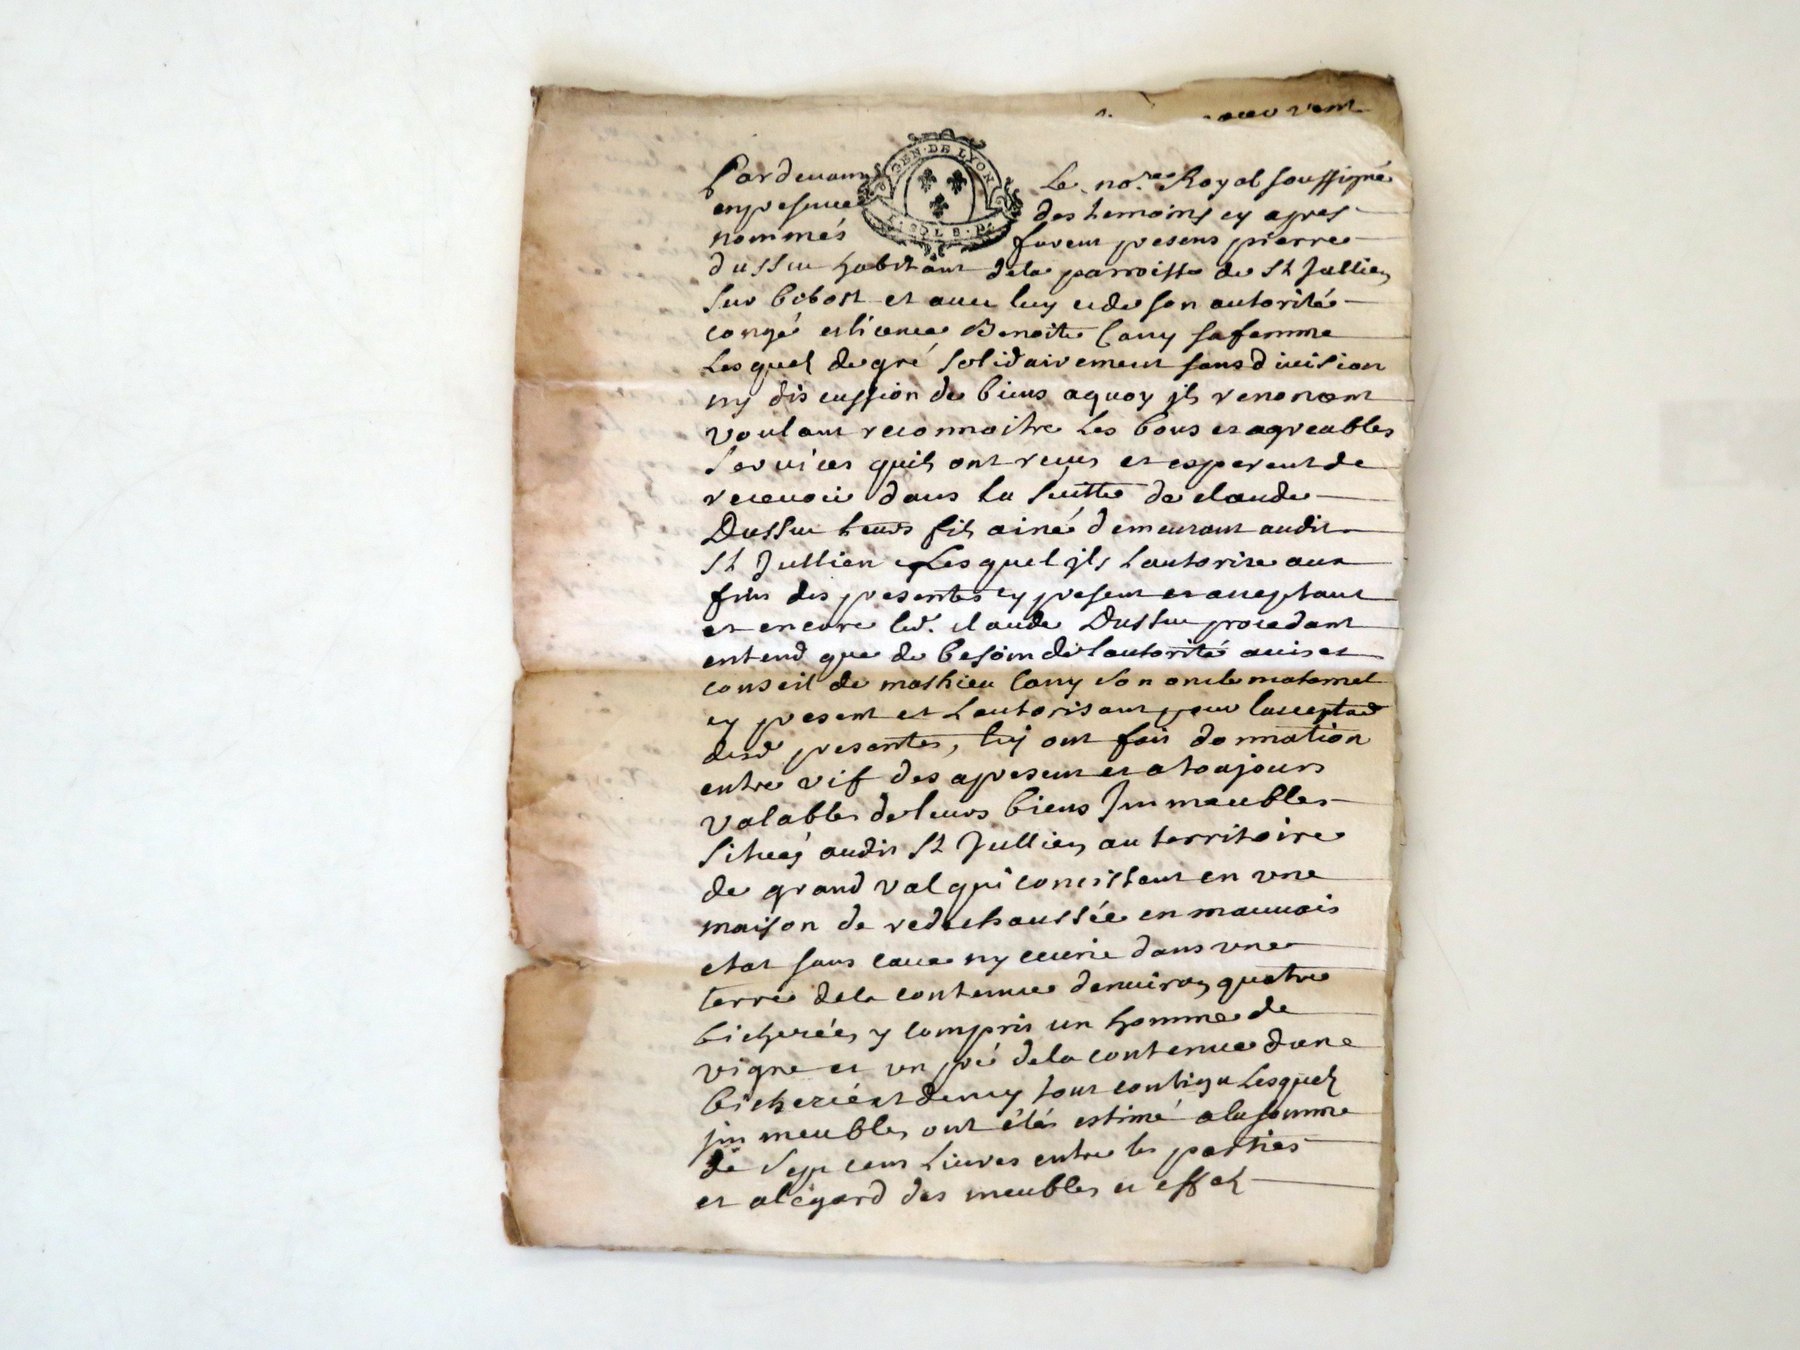 GEN·DE LYON
Pardevant Le no.re Royal soussigné
en presence des temoins cy apres
nommés furent presens pierre
dussu habitant dela parroisse de St Jullien
sur bibost et avec luy et de son autorité
congé et licence Benoite Cany sa femme
Lesquel de gré solidairement sans division
ny discussion de biens a quoy jls renoncent
voulant reconnoitre Les bons et agreables
services quils ont reçus et esperent de
recevoir dans La suitte de claude
Dussu Leurs fils ainé demeurant audit
St Jullien Lesquel jls Lautorise aux
fins des presentes cy present et acceptant
et encore led. claude Dussu procedant
entend que de besoin de Lautorité avis et
conseil de mathieu Cany son oncle maternel
cy present et Lautorisant pour
desd presentes, luy ont fait donnation
entre vif des apresent et a toujours
valables de leurs biens Jmmeubles
Situés audit St Jullien au territoire
de grand val qui concistent en vne
maison de reduchaussée en mauvais
etat sans cave ny cuvrie dans vne
terre dela contenue denviron quatre
bicherées y compris un homme de
vigne et vn pré dela contenue dune
bicherée et demy tout contigu Lesquels
jmmeubles ont étés estimé a la somme
de Sept cent Livres entre les parties
et alégard des meubles et effets